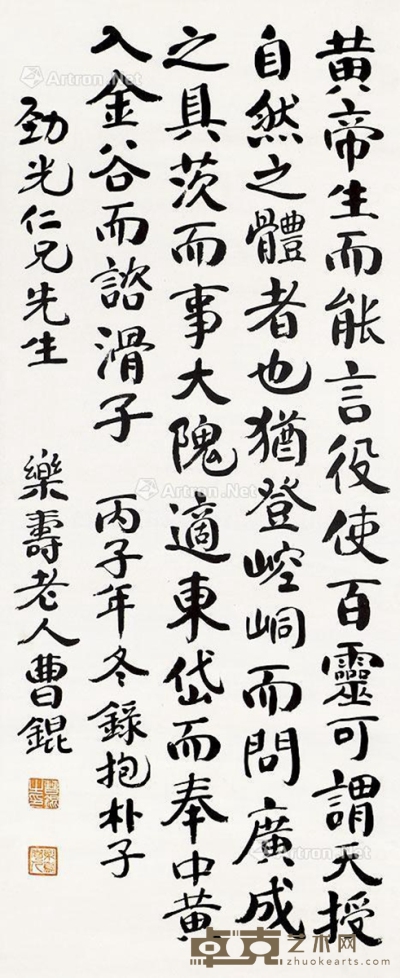 黄帝生而能言役使百靈可謂天授
自然之體者也猶登崆峒而問廣成
之具茨而事大隗適東岱而奉中黄
入金谷而諮滑子 丙子年冬錄抱朴子
劲光仁兄先生 樂壽老人曹錕
Artron.Net
Artron.Net
Artron.Net
Artron.Net
卓克艺术网
zhuokearts.com